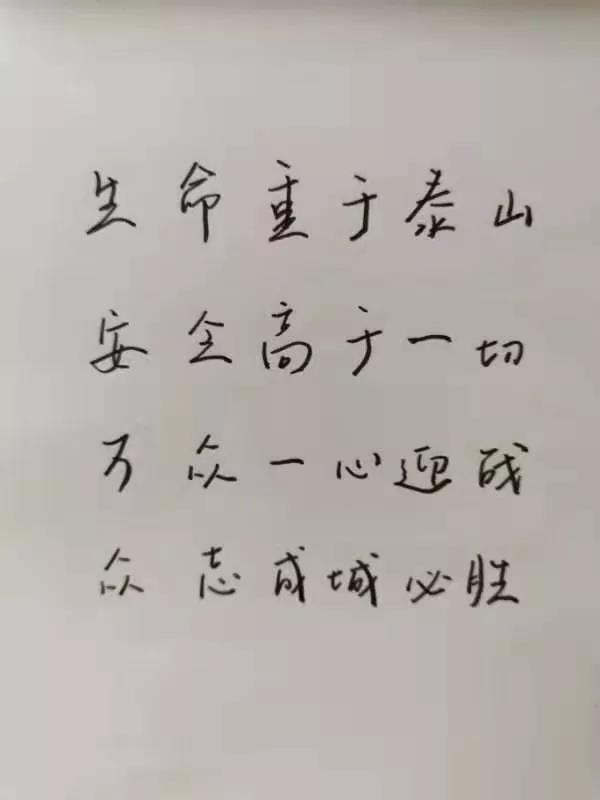 生命重于泰山
安全高于一切
万众一心迎战
众志成城必胜